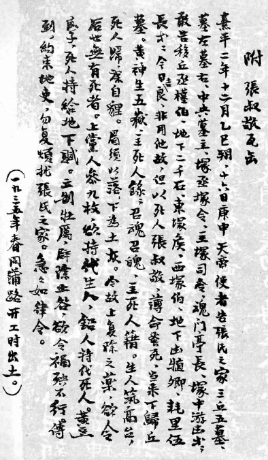 附 張叔敬瓦缶
熹平二年十二月乙巳朔,十六日庚申,天帝使者告張氏之家、三丘五墓、
墓左墓右、中央墓主、塚丞塚令、主塚司令、魂門亭長、塚中游擊等:
敢告移丘丞柏、地下二千石、東塚侯、西塚伯、地下犆卿、耗里伍
長等:今日吉良,非用他故,但以死人張叔敬,薄命蚤死,當來下歸丘
墓。黄神生五嶽,主死人錄,召魂召魄,主死人籍。生人筑高台,
死人歸,深自貍。眉須以落,下為土灰。今故上復除之藥,欲令
后世無有死者。上黨人參九枚,欲持代生人,鉛人持代死人。黄豆
瓜子,死人持給地下賦。立制牡厲,辟除土咎,欲令禍殃不行。傳
到,約束地吏,勿復煩擾張氏之家。急如律令。
(一九三五年春同蒲路开工时出土。)